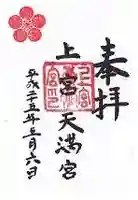 奉拝
上宮天満宮
平成二五年三月六日